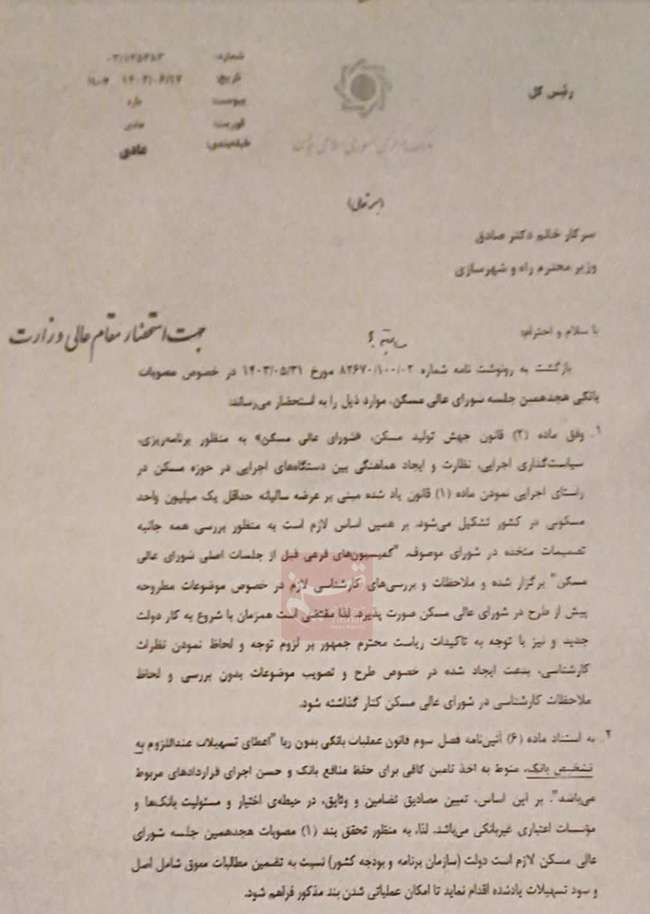 رئیس کل
شماره:
تاریخ: ۱۴۰۳/۰۶/۱۷
پیوست: دارد
فوریت: عادی
طبقه‌بندی: عادی
بسمه تعالی
سرکار خانم دکتر صادق
وزیر محترم راه و شهرسازی
جهت استحضار مقام عالی وزارت
با سلام و احترام؛
بازگشت به رونوشت نامه شماره ۸۲۶۷۰/۱۰۰/۰۲ مورخ ۱۴۰۳/۰۵/۳۱ در خصوص مصوبات
بانکی هجدهمین جلسه شورای عالی مسکن، موارد ذیل را به استحضار می‌رساند:
۱. وفق ماده (۲) قانون جهش تولید مسکن، «شورای عالی مسکن» به منظور برنامه‌ریزی،
سیاست‌گذاری اجرایی، نظارت و ایجاد هماهنگی بین دستگاه‌های اجرایی در حوزه مسکن در
راستای اجرایی نمودن ماده (۱) قانون یاد شده مبنی بر عرضه سالیانه حداقل یک میلیون واحد
مسکونی در کشور تشکیل می‌شود. بر همین اساس لازم است به منظور بررسی همه جانبه
تصمیمات متخذه در شورای موصوف، "کمیسیون‌های فرعی قبل از جلسات اصلی شورای عالی
مسکن" برگزار شده و ملاحظات و بررسی‌های کارشناسی لازم در خصوص موضوعات مطروحه
پیش از طرح در شورای عالی مسکن صورت پذیرد. لذا مقتضی است همزمان با شروع به کار دولت
جدید و نیز با توجه به تاکیدات ریاست محترم جمهور بر لزوم توجه و لحاظ نمودن نظرات
کارشناسی، بدعت ایجاد شده در خصوص طرح و تصویب موضوعات بدون بررسی و لحاظ
ملاحظات کارشناسی در شورای عالی مسکن کنار گذاشته شود.
۲. به استناد ماده (۶) آئین‌نامه فصل سوم قانون عملیات بانکی بدون ربا "اعطای تسهیلات عنداللزوم به
تشخیص بانک، منوط به اخذ تامین کافی برای حفظ منافع بانک و حسن اجرای قراردادهای مربوط
می‌باشد". بر این اساس، تعیین مصادیق تضامین و وثایق، در حیطه‌ی اختیار و مسئولیت بانک‌ها و
مؤسسات اعتباری غیربانکی می‌باشد. لذا، به منظور تحقق بند (۱) مصوبات هجدهمین جلسه شورای
عالی مسکن لازم است دولت (سازمان برنامه و بودجه کشور) نسبت به تضمین مطالبات معوق شامل اصل
و سود تسهیلات یادشده اقدام نماید تا امکان عملیاتی شدن بند مذکور فراهم شود.